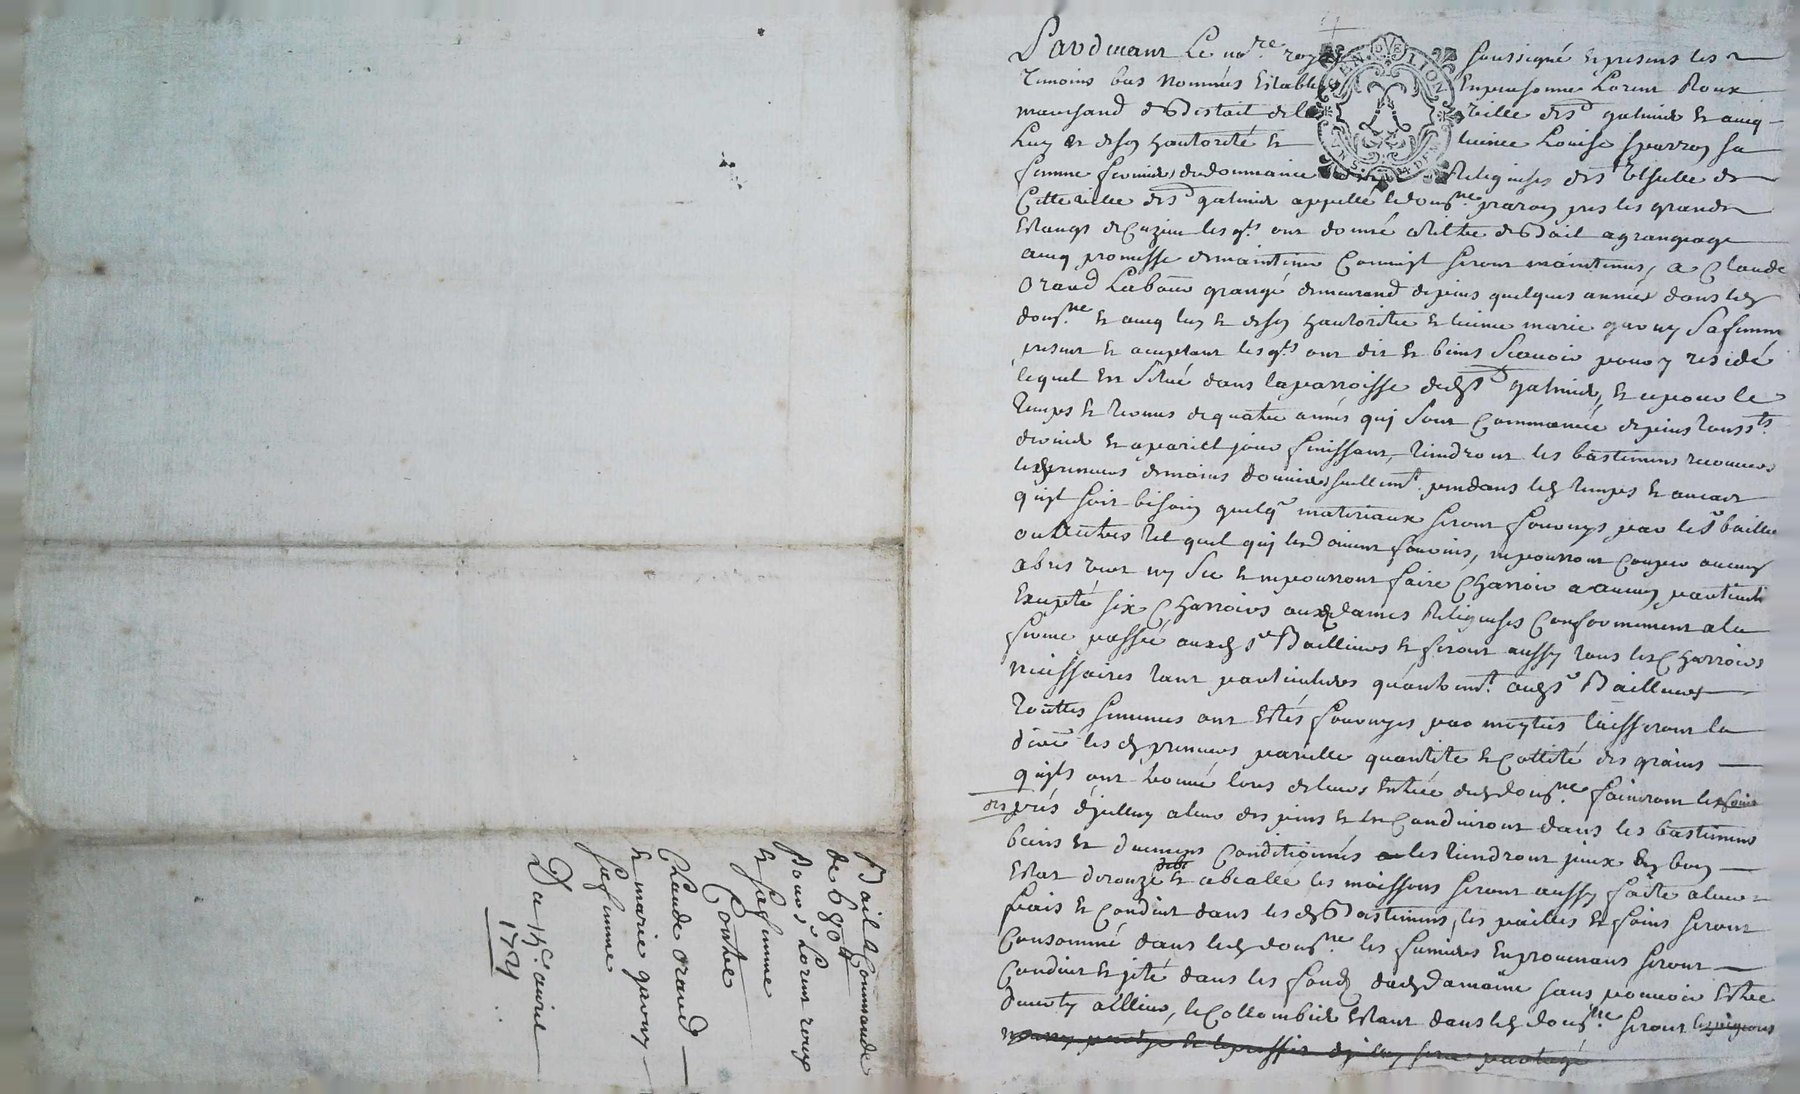 Pardevant le no.re royal soussigné et presens les
temoins bas nommés establis en personne Lorent Roux
marchand de Bestail de la ville de S.t galmier et aveq
luy et de son hautorité et licince Louise sa
femme fermiers du domaine des Religieuses de S.te Ursulle de
Cette ville de S.t galmier appellé le dom.ne pres les grands
Estangs de les q.ls ont donné a tiltre de Bail a grangeage
aveq promesse de maintenir a Claude
Oraud Laboureur grangé demeurand depuis quelques années dans led.
dom.ne et aveq luy et de son hautoritée et licince marie gavouy sa femme
present et aceptant les q.ls ont dit et biens scavoir pour y residé
lequel est situé dans la parroisse dud. S.t galmier, et ce pour le
temps et termes de quatre annés qui sont Commancée depuis touss.ts
dernier et a pareil jour finissant, tiendront les bastimens recouvers
lesd. preneurs de mains d'ouvriers seullem.t pendans led. temps et au cas
qu'il soit besoin quelq. materiaux seront fournys par le S.r bailleur
ou autres tel quel qui les doivent fournir, ne pourront Couper aucuns
abres vert ny sec et ne pourront faire Charroir a aucun particulier
Excepté six Charroirs auxd. dames Religieuses Conformement a la
ferme passée auxd. S.r Bailleurs et feront aussy tous les Charroirs
necessaires tant particuliers quautrem.t aud. S.r Bailleurs
Touttes semences ont estés fournyes par moytiés laisseront la
dernier lesd. preneurs pareille quantité et Cottité des grains
qu'ils ont trouvé lors de leurs Entrée dud. dom.ne faineront les foins
des prés d'jcelluy a leur despens et les Conduiront dans les bastimens
biens et duement Conditionnés les tiendront jceux en bon
Estat les moissons seront aussy faite a leur
frais et Conduit dans lesd. Bastimens, les pailles et foins seront
Consommé dans led. dom.ne les fumiers en provenans seront
Conduit et jeté dans les fonds dud. domaine sans pouvoir Estre
diverty allieur, le Collombier Estant dans led. dom.ne seront les pigeons
sera partagé
GEN LION
Bail a Commande
de 680 lt
Pour S.r Lorent roux
et sa femme
Contre
Claude oraud
et marie gavouy
sa femme
Du 15.e avril
1721